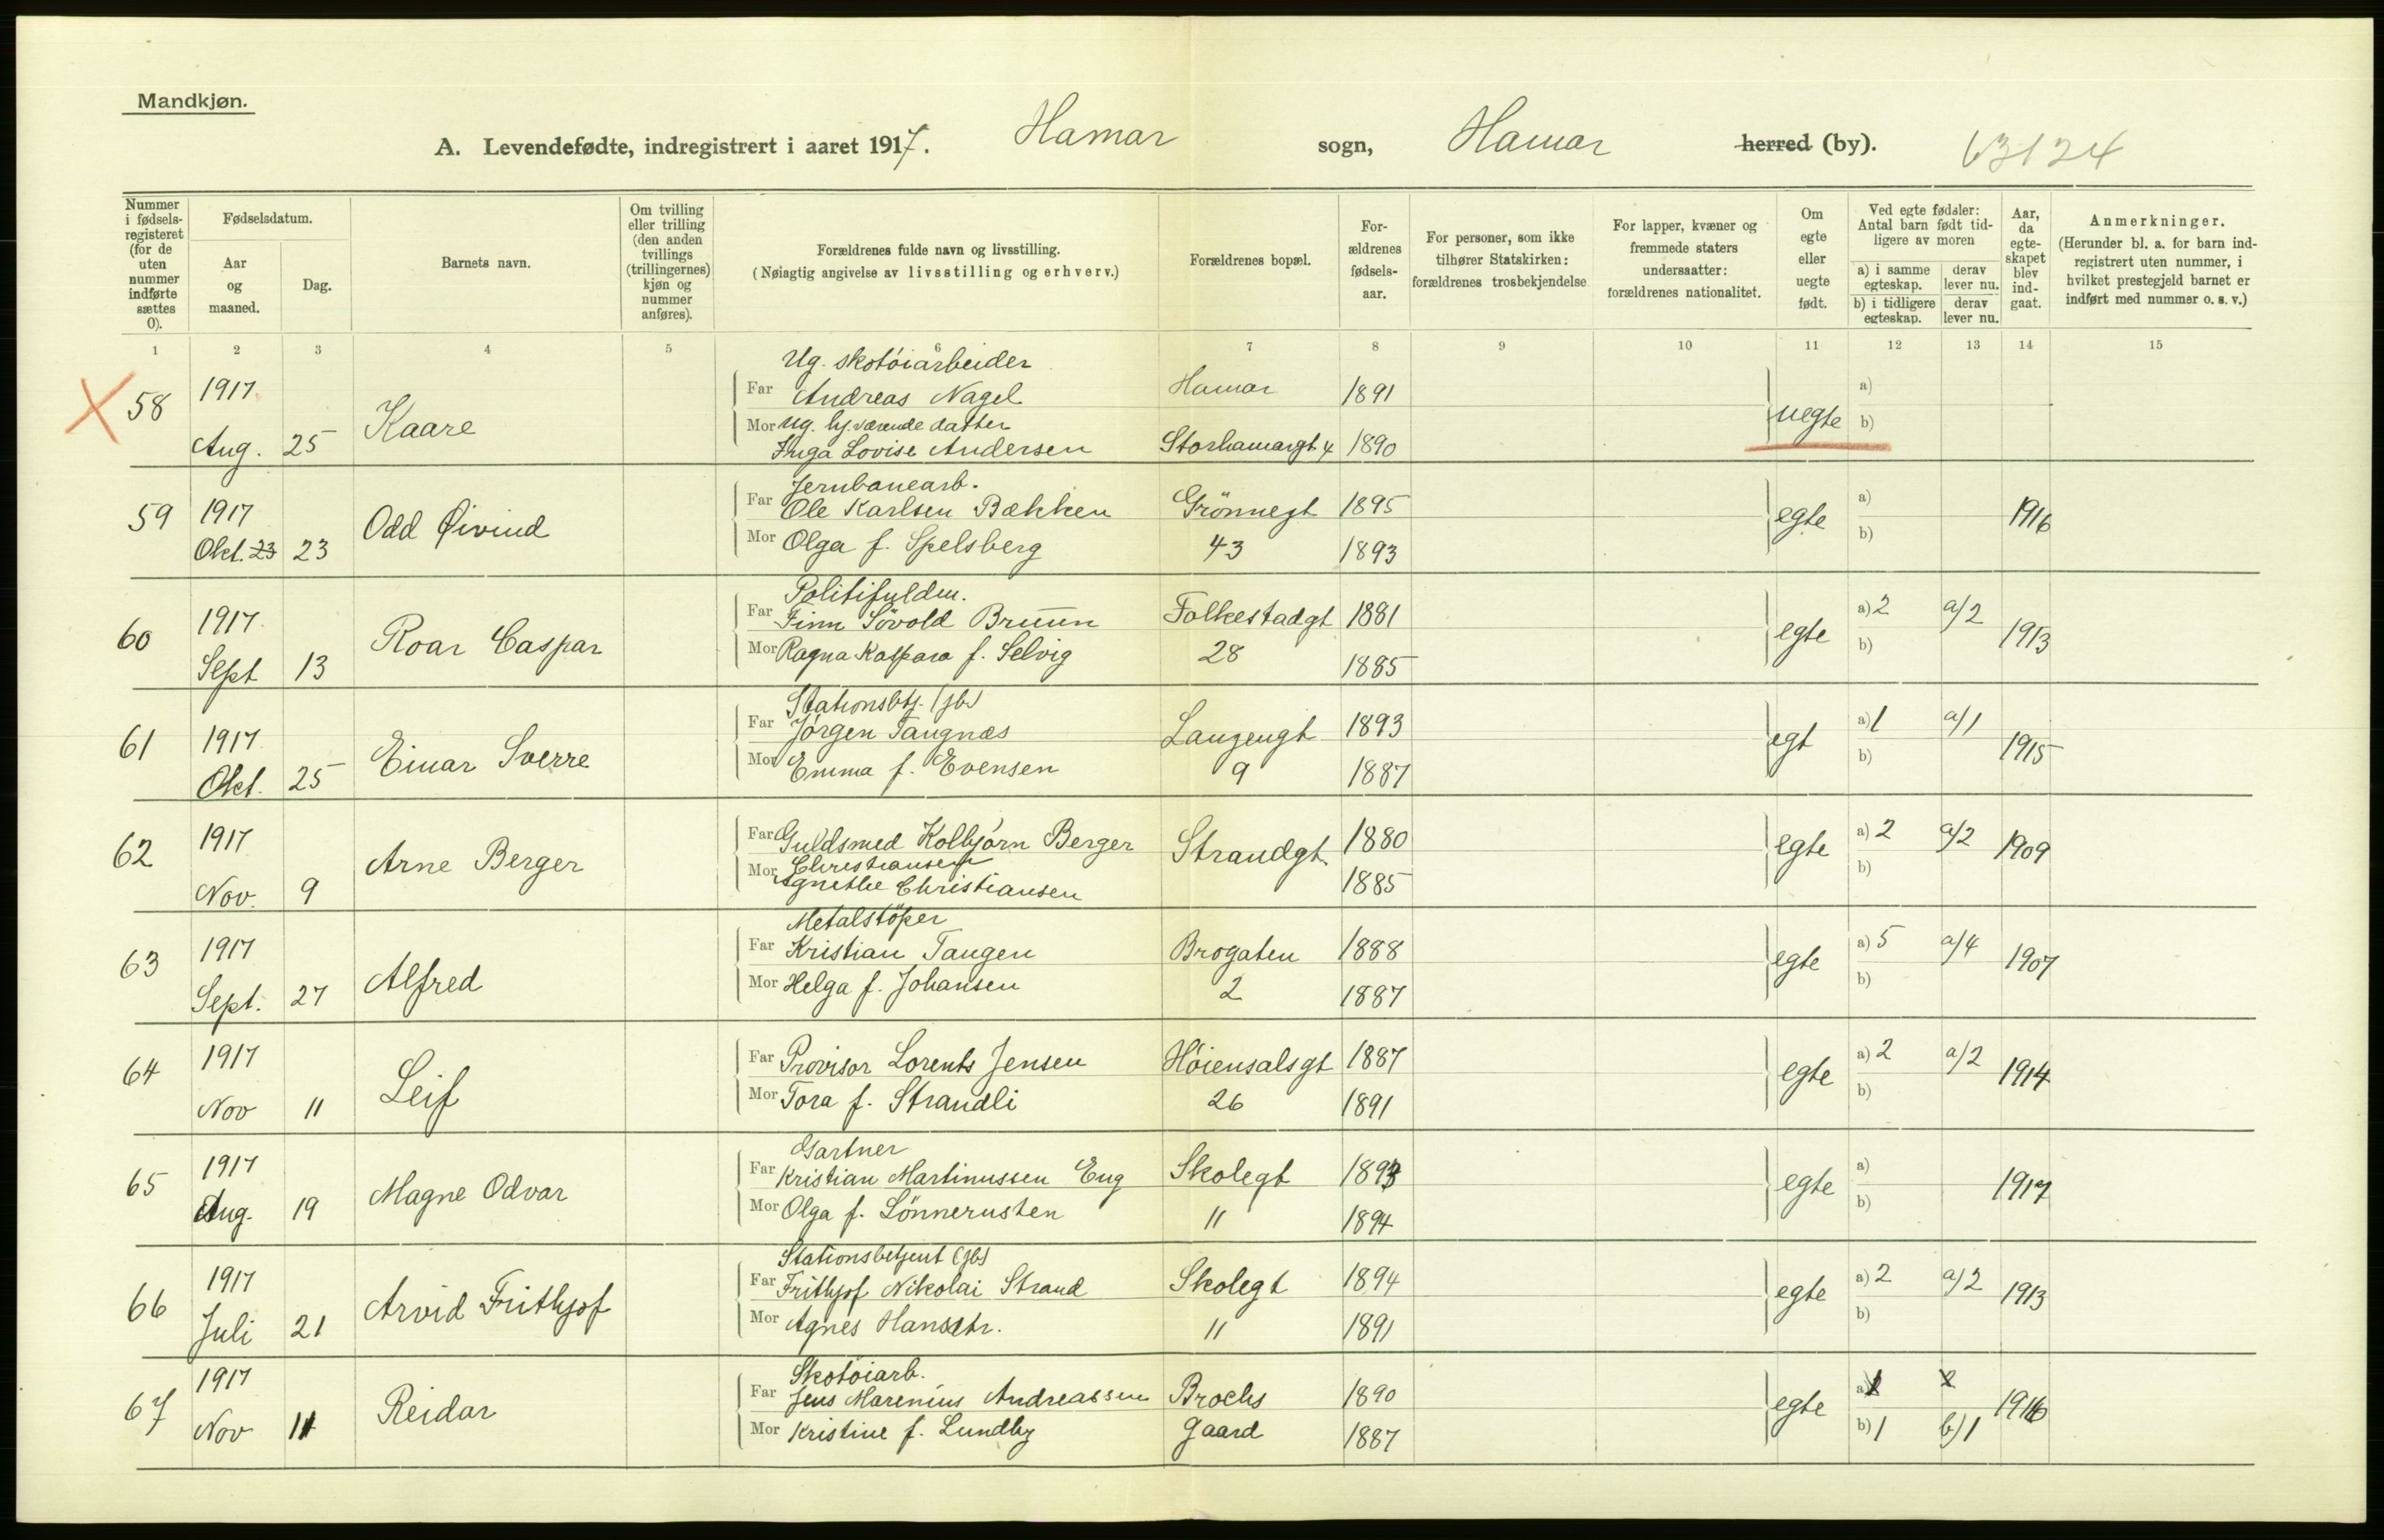 Mandkjøn.
A. Levendefødte, indregistrert i aaret 1917. Hamar sogn, Hamar herred (by). 63124
Nummer i fødsels-registeret (for de uten nummer indførte sættes 0).
Fødselsdatum.
Aar og maaned.
Dag.
Barnets navn.
Om tvilling eller trilling (den anden tvillings (trillingernes) kjøn og nummer anføres).
Forældrenes fulde navn og livsstilling.
(Nøiagtig angivelse av livsstilling og erhverv.)
Forældrenes bopæl.
For-ældrenes fødsels-aar.
For personer, som ikke tilhører Statskirken: forældrenes trosbekjendelse
For lapper, kvæner og fremmede staters undersaatter: forældrenes nationalitet.
Om egte eller uegte født.
Ved egte fødsler: Antal barn født tid-ligere av moren
a) i samme egteskap.
derav lever nu.
b) i tidligere egteskap.
derav lever nu.
Aar, da egte-skapet blev ind-gaat.
Anmerkninger.
(Herunder bl. a. for barn ind-registrert uten nummer, i hvilket prestegjeld barnet er indført med nummer o. s. v.)
1 2 3 4 5 6 7 8 9 10 11 12 13 14 15
Ug. skotöiarbeider
58 1917 Far Andreas Nagel Hamar 1891 a)
Kaare uegte
Mor Ug. hj.værende datter b)
Aug. 25 Inga Lovise Andersen Storhamargt. 4 1890
Jernbanearb.
59 1917 Far Ole Karlsen Bækken Grönnegt 1895 a)
Odd Øivind egte 1916
Okt. 23 23 Mor Olga f. Spelsberg 43 1893 b)
Politifuldm.
60 1917 Far Finn Sövold Bruun Folkestadgt 1881 a) 2 a/2
Roar Caspar egte 1913
Sept 13 Mor Ragna Kaspara f. Selvig 28 1885 b)
Stationsbtj. (jb)
61 1917 Far Jörgen Tangnæs Langengt 1893 a) 1 a/1
Einar Sverre egt 1915
Okt. 25 Mor Emma f. Evensen 9 1887 b)
62 1917 Far Guldsmed Kolbjörn Berger Strandgt. 1880 a) 2 a/2
Arne Berger egte 1909
Christiansen
Nov. 9 Mor Agnethe Christiansen 1885 b)
Metalstöper
63 1917 Far Kristian Tangen Brogaten 1888 a) 5 a/4
Alfred egte 1907
Sept. 27 Mor Helga f. Johansen 2 1887 b)
64 1917 Far Provisor Lorents Jensen Höiensalsgt 1887 a) 2 a/2
Leif egte 1914
Nov 11 Mor Tora f. Strandli 26 1891 b)
Gartner
65 1917 Far Kristian Martinussen Eng Skolegt 1893 a)
Magne Odvar egte 1917
Aug. 19 Mor Olga f. Lönnerusten 11 1894 b)
Stationsbetjent (jb)
66 1917 Far Frithjof Nikolai Strand Skolegt 1894 a) 2 a/2
Arvid Frithjof egte 1913
Juli 21 Mor Agnes Hansdtr. 11 1891 b)
Skotöiarb.
67 1917 Far Jens Marenius Andreassen Brochs 1890 a)
Reidar egte 1916
Nov 11 Mor Kristine f. Lundby gaard 1887 b) 1 b) 1